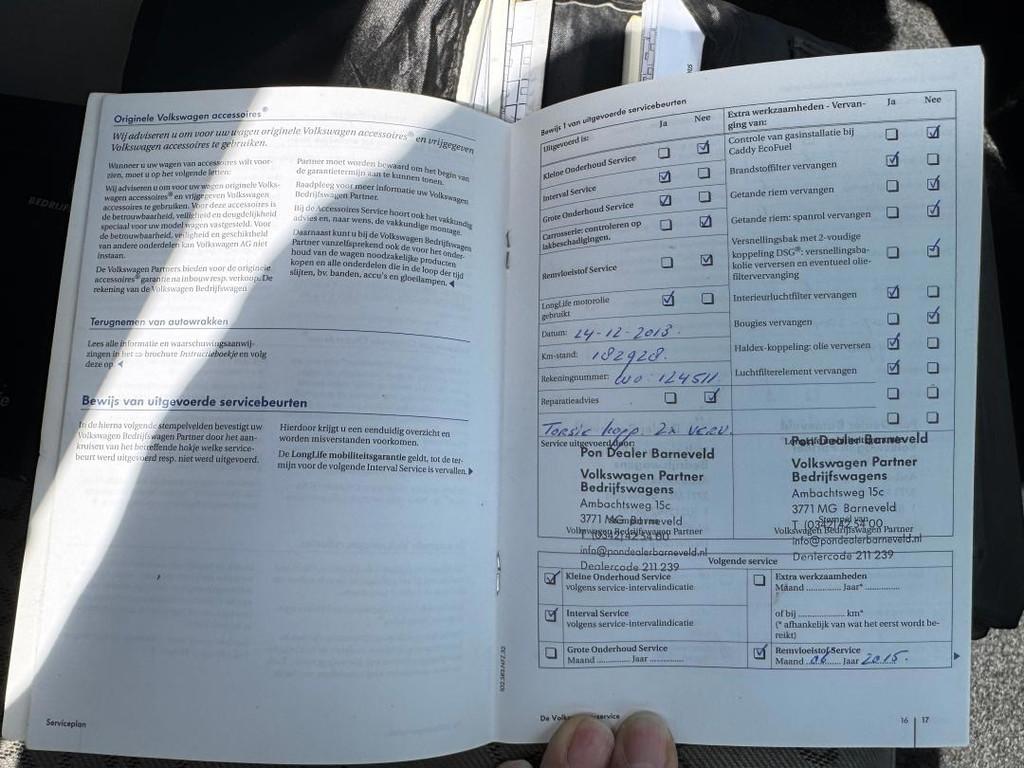 Originele Volkswagen accessoires®
Wij adviseren u om voor uw wagen originele Volkswagen accessoires® en vrijgegeven
Volkswagen accessoires te gebruiken.
Wanneer u uw wagen van accessoires wilt voor-
zien, moet u op het volgende letten:
Wij adviseren u om voor uw wagen originele Volks-
wagen accessoires® en vrijgegeven Volkswagen
accessoires te gebruiken. Voor deze accessoires is
de betrouwbaarheid, veiligheid en deugdelijkheid
speciaal voor uw model wagen vastgesteld. Voor
de betrouwbaarheid, veiligheid en geschiktheid
van andere onderdelen kan Volkswagen AG niet
instaan.
De Volkswagen Partners bieden voor de originele
accessoires® garantie na inbouw resp. verkoop. De
rekening van de Volkswagen Bedrijfswagen
Partner moet worden bewaard om het begin van
de garantietermijn aan te kunnen tonen.
Raadpleeg voor meer informatie uw Volkswagen
Bedrijfswagen Partner.
Bij de Accessoires Service hoort ook het vakkundig
advies en, naar wens, de vakkundige montage.
Daarnaast kunt u bij de Volkswagen Bedrijfswagen
Partner vanzelfsprekend ook de voor het onder-
houd van de wagen noodzakelijke producten
kopen en alle onderdelen die in de loop der tijd
slijten, bv. banden, accu's en gloeilampen.
Terugnemen van autowrakken
Lees alle informatie en waarschuwingsaanwij-
zingen in het ⇒ brochure Instructieboekje en volg
deze op.
Bewijs van uitgevoerde servicebeurten
In de hierna volgende stempelvelden bevestigt uw
Volkswagen Bedrijfswagen Partner door het aan-
kruisen van het betreffende hokje welke service-
beurt werd uitgevoerd resp. niet werd uitgevoerd.
Hierdoor krijgt u een eenduidig overzicht en
worden misverstanden voorkomen.
De LongLife mobiliteitsgarantie geldt, tot de ter-
mijn voor de volgende Interval Service is vervallen.
Serviceplan
Bewijs 1 van uitgevoerde servicebeurten
Uitgevoerd is: Ja Nee
Kleine Onderhoud Service
Interval Service
Grote Onderhoud Service
Carrosserie: controleren op
lakbeschadigingen.
Remvloeistof Service
LongLife motorolie
gebruikt
Datum: 24-12-2013.
Km-stand: 182928.
Rekeningnummer: wo: 124511.
Reparatieadvies
Torsie hopp 2x verv.
Extra werkzaamheden - Vervan-
ging van: Ja Nee
Controle van gasinstallatie bij
Caddy EcoFuel
Brandstoffilter vervangen
Getande riem vervangen
Getande riem: spanrol vervangen
Versnellingsbak met 2-voudige
koppeling DSG®: versnellingsba-
kolie verversen en eventueel olie-
filtervervanging
Interieurluchtfilter vervangen
Bougies vervangen
Haldex-koppeling: olie verversen
Luchtfilterelement vervangen
Service uitgevoerd door:
Pon Dealer Barneveld
Volkswagen Partner
Bedrijfswagens
Ambachtsweg 15c
3771 MG Barneveld
T (0342) 42 54 00
Volkswagen Bedrijfswagen Partner
info@pondealerbarneveld.nl
Dealercode 211 239
Pon Dealer Barneveld
Volkswagen Partner
Bedrijfswagens
Ambachtsweg 15c
3771 MG Barneveld
Stempel van
T (0342) 42 54 00
Volkswagen Bedrijfswagen Partner
info@pondealerbarneveld.nl
Dealercode 211 239
Volgende service
Kleine Onderhoud Service
volgens service-intervalindicatie
Interval Service
volgens service-intervalindicatie
Grote Onderhoud Service
Maand ............ Jaar ............
Extra werkzaamheden
Maand ............ Jaar* ............
of bij ............ km*
(* afhankelijk van wat het eerst wordt be-
reikt)
Remvloeistof Service
Maand 06 Jaar 2015.
102.5R3.NFZ.32
16 | 17